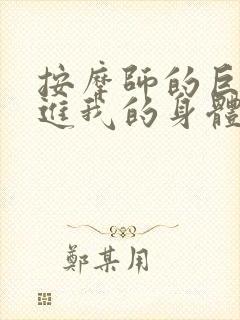 按摩師的巨
進我的身體
鄭某用